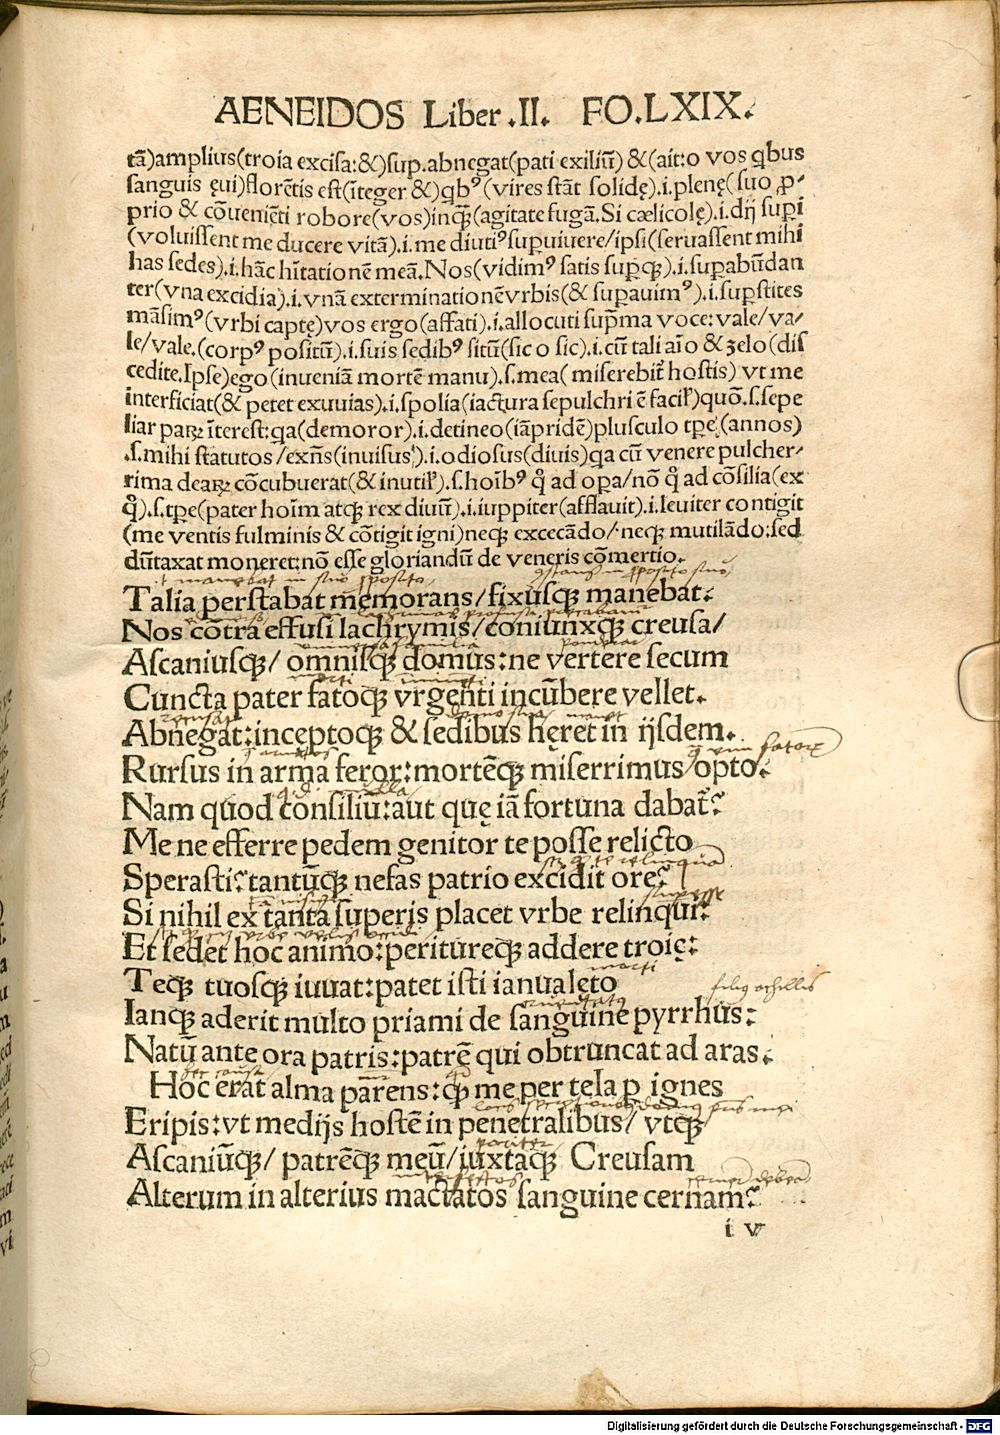 AENEIDOS Liber .II. FO.LXIX.
tã)amplius(troia excisa:&)sup.abnegat(pati exiliũ) &(ait:o vos qbus
sanguis ęui)florẽtis est(ĩteger &)qbꝰ(vires stãt solidę).i.plenę(suo ꝓ-
prio & cõueniẽti robore(vos)inq̃(agitate fugã.Si cælicolę).i.dij supi
(voluissent me ducere vitã).i.me diutiꝰsupuiuere/ipsi(seruassent mihi
has sedes).i.hãc hĩtationẽ meã.Nos(vidimꝰ satis supqꝫ).i.supabũdan
ter(vna excidia).i.vnã exterminationẽvrbis(& supauimꝰ).i.supstites
mãsimꝰ(vrbi captę)vos ergo(affati).i.allocuti sup̃ma voce:vale/va/
le/vale.(corpꝰ positũ).i.suis sedibꝰ sitũ(sic o sic).i.cũ tali aĩo & zelo(dis
cedite.Ipse)ego(inueniã mortẽ manu).s.mea( miserebit̃ hostis) vt me
interficiat(& petet exuuias).i.spolia(iactura sepulchri ẽ facil̕)quõ.s.sepe
liar paꝝ ĩterest:qa(demoror).i.detineo(iãpridẽ)plusculo tpe(annos)
.s.mihi statutos/exñs(inuisus).i.odiosus(diuis)qa cũ venere pulcher/
rima deaꝝ cõcubuerat(& inutil̕).s.hoĩbꝰ q̃ ad opa/nõ q̃ ad cõsilia(ex
q̊).s.tpe(pater hoĩm atqꝫ rex diuũ).i.iuppiter(afflauit).i.leuiter contigit
(me ventis fulminis & cõtigit igni)neqꝫ excecãdo/neqꝫ mutilãdo:sed
dũtaxat moneret:nõ esse gloriandũ de veneris cõmertio.
Talia perstabat memorans/fixusqꝫ manebat.
Nos cõtra effusi lachrymis/coniunxqꝫ creusa/
Ascaniusqꝫ/ omnisqꝫ domus:ne vertere secum
Cuncta pater fatoqꝫ vrgenti incũbere vellet.
Abnegat:inceptoqꝫ & sedibus hęret in ijsdem.
fatoꝝ
Rursus in arma feror:mortẽqꝫ miserrimus opto.
Nam quod consiliũ:aut quę iã fortuna dabat̃?
Me ne efferre pedem genitor te posse relicto
Sperasti?tantũqꝫ nefas patrio excidit ore?
Si nihil ex tanta superis placet vrbe relinqui:
Et sedet hoc animo:peritureqꝫ addere troię:
Teqꝫ tuosqꝫ iuuat:patet isti ianualeto
filiꝰ achillis
Ianqꝫ aderit multo priami de sanguine pyrrhus:
Natũ ante ora patris:patrẽ qui obtruncat ad aras.
Hoc erat alma parens:qꝫ me per tela p ignes
Eripis:vt medijs hostẽ in penetralibus/ vtqꝫ
Ascaniũqꝫ/ patrẽqꝫ meũ/iuxtaqꝫ Creusam
Alterum in alterius mactatos sanguine cernam?
i v
Digitalisierung gefördert durch die Deutsche Forschungsgemeinschaft - DFG